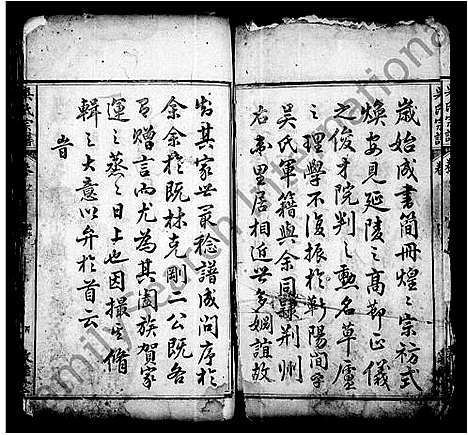 歲始成書簡冊煌煌宗祊式
煥安見延陵之高節正儀
之俊才院判之勳名草廬
之理學不復振於蘄陽間乎
吳氏軍籍與余同隸荆州
右韦里居相近世多姻誼故
於其家世最稔譜成问序於
余余於既林克剛二公既各
有赠言而尤為其闔族賀家
運之蒸蒸日上也因撮其脩
輯之大意以弁於首云
旹
吳氏宗譜
卷
Family Search International